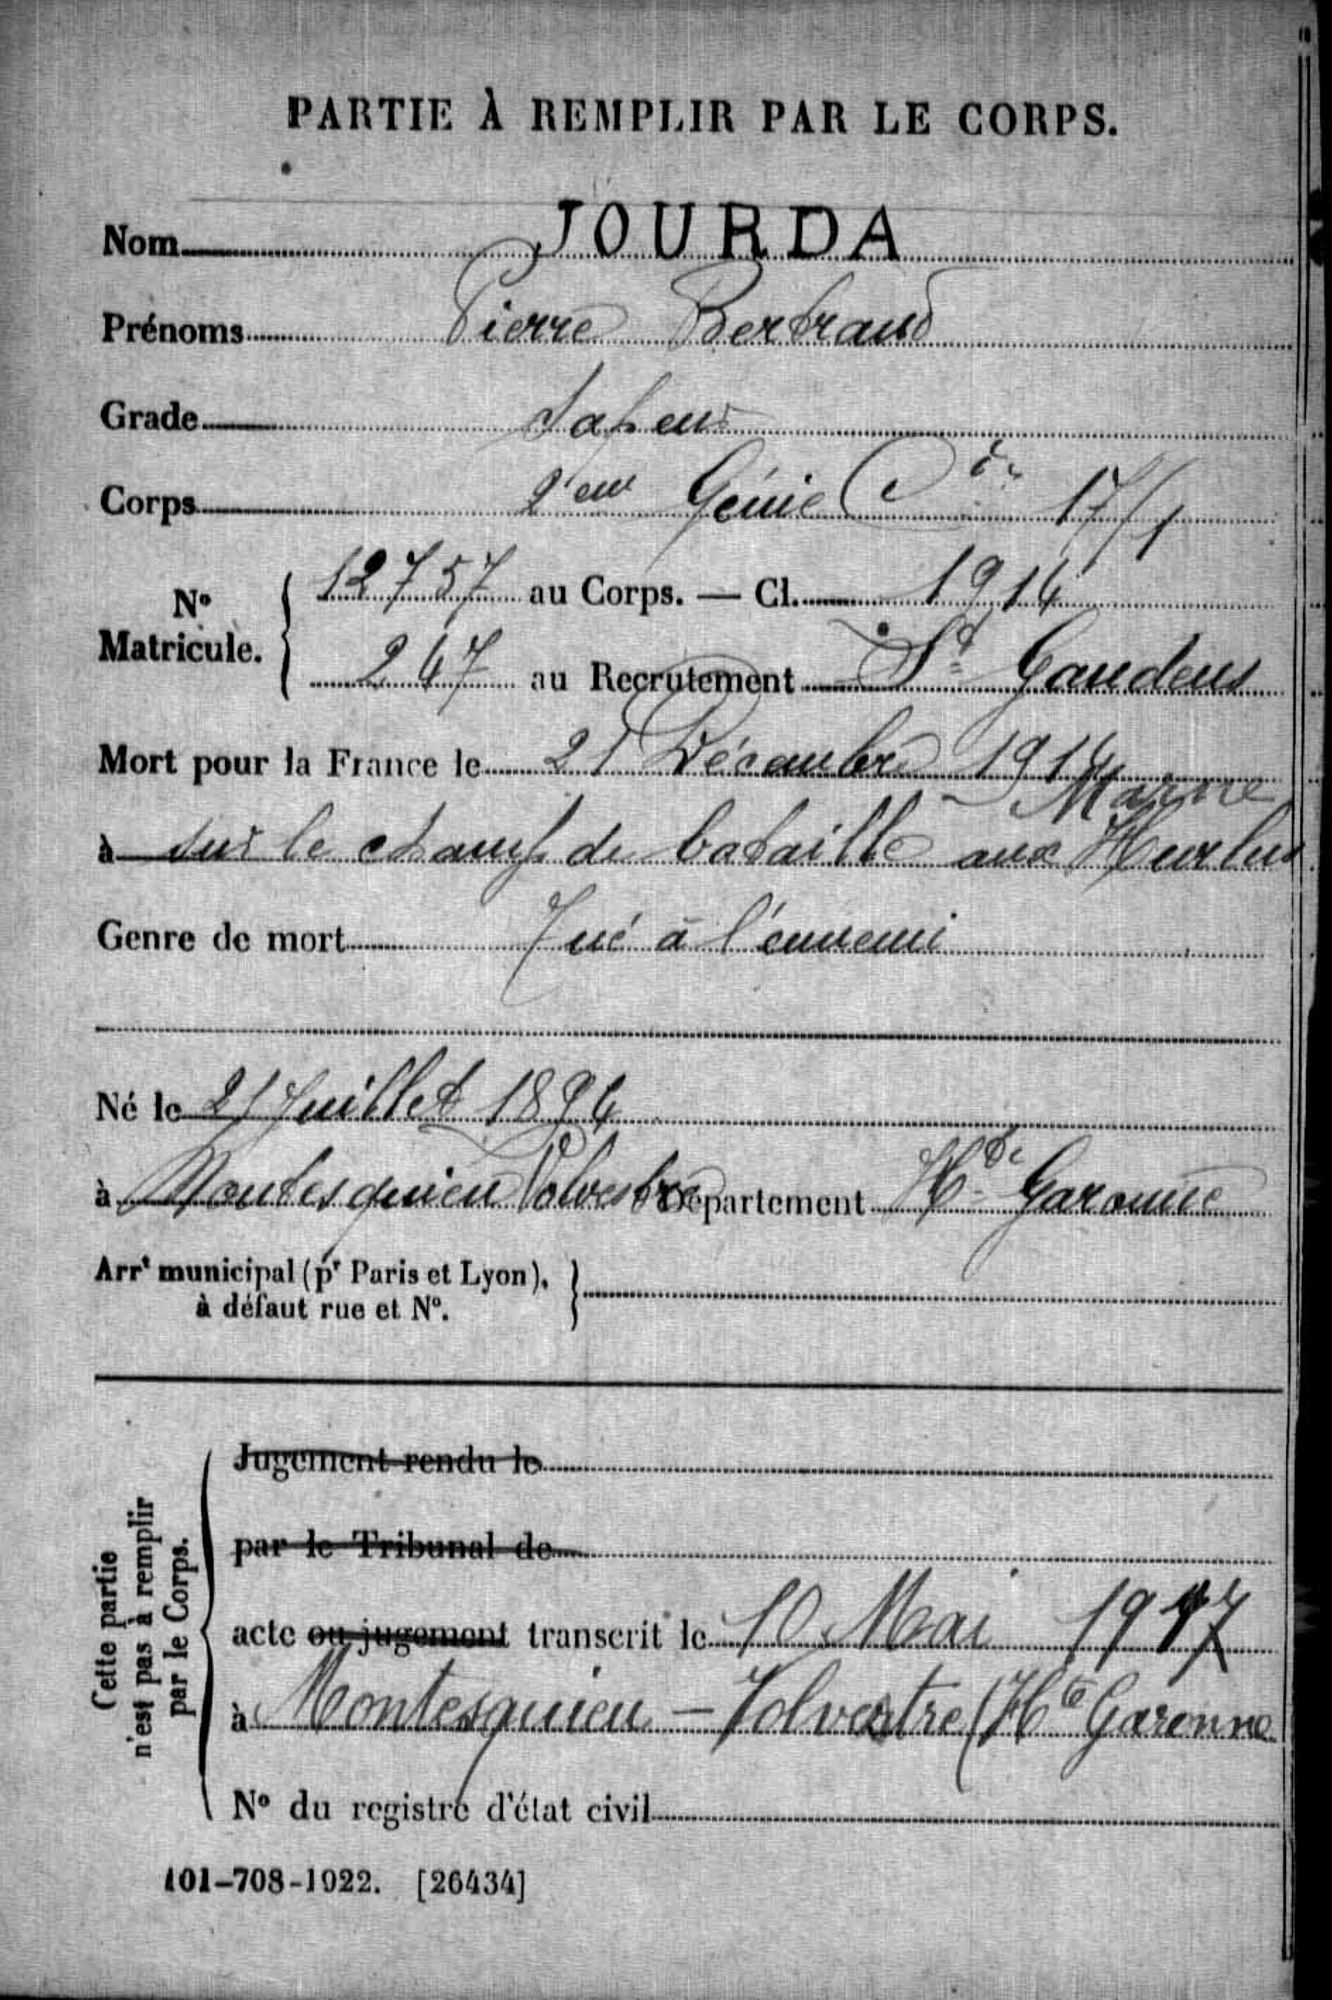 PARTIE À REMPLIR PAR LE CORPS.
Nom JOURDA
Prénoms Pierre Bertrand
Grade Sapeur
Corps 2eme Génie Cie 17/1
No Matricule. 12757 au Corps. — Cl. 1914
247 au Recrutement St Gaudens
Mort pour la France le 21 Décembre 1914
Marne
à sur le champ de bataille aux Hurlus
Genre de mort Tué à l'ennemi
Né le 21 Juillet 1894
à Montesquieu Volvestre Département Hte Garonne
Arrt municipal (pr Paris et Lyon),
à défaut rue et No.
Cette partie
n'est pas à remplir
par le Corps.
Jugement rendu le
par le Tribunal de
acte ou jugement transcrit le 10 Mai 1917
à Montesquieu - Volvestre (Hte Garonne
No du registre d'état civil
101-708-1922. [26434]